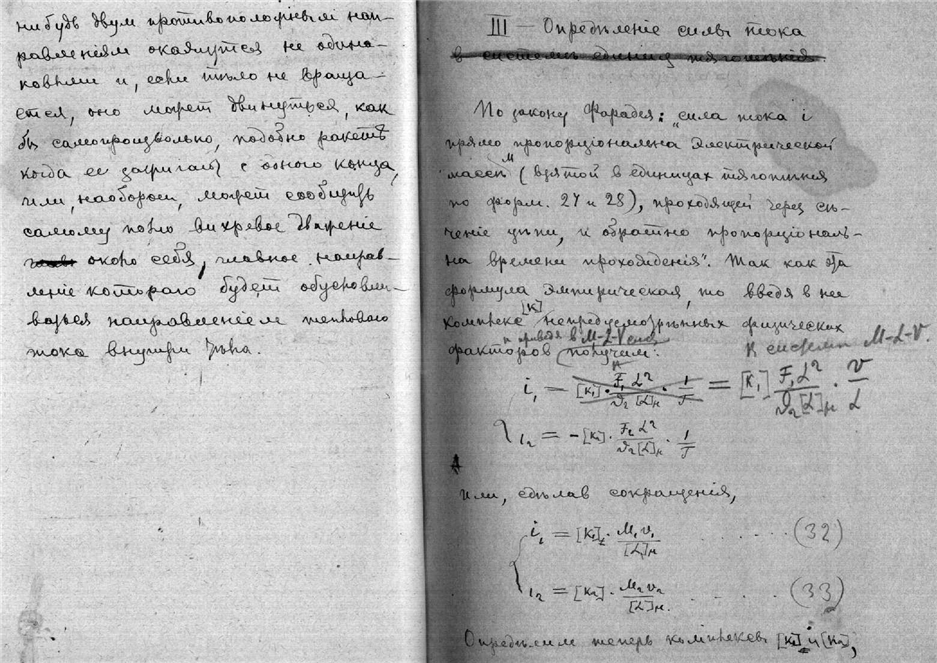 нибудь двум противоположным нап-
равленіям окажутся не одина-
ковыми и, если тѣло не враща-
ется, оно может двинуться, как
бы самопроизвольно, подобно ракетѣ
когда ее зажигают с одного конца,
или, наоборот, может сообщить
самому вихревое движеніе
около себя, главное направ-
леніе котораго будет обусловли-
ваться направленіем теплового
тока внутри тѣла.
III — Опредѣленіе силы тока
в системѣ единиц тяготѣнія
По закону Фарадея: „сила тока i
прямо пропорціональна электрической
массѣ M (взятой в единицах тяготѣнія
по форм. 27 и 28), проходящей через сѣ-
ченіе цѣпи, и обратно пропорціональ-
на времени прохожденія". Так как эта
формула эмпирическая, то введя в нее
комплекс [K] непредусмотрѣнных физических
факторов и приведя в M-L-V сист. получим: к системѣ M-L-V.
i₁ = [K₁] · F₁L²/ϑ₂[L]н · 1/T = [K₁] F₁L²/ϑ₂[L]н · v/L
i₂ = -[K₂] · F₂L²/ϑ₂[L]н · 1/T
Или, сдѣлав сокращенія,
i₁ = [K₁] · M₁v₁/[L]н . . . . . (32)
i₂ = [K₂] · M₂v₂/[L]н . . . . . (33)
Опредѣлим теперь комплексы [K₁] и [K₂],